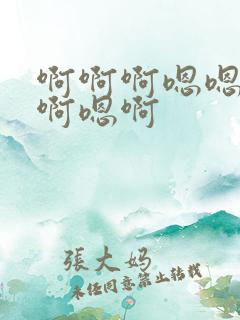 啊啊啊嗯嗯
啊嗯啊
張大妈
未经同意禁止转载